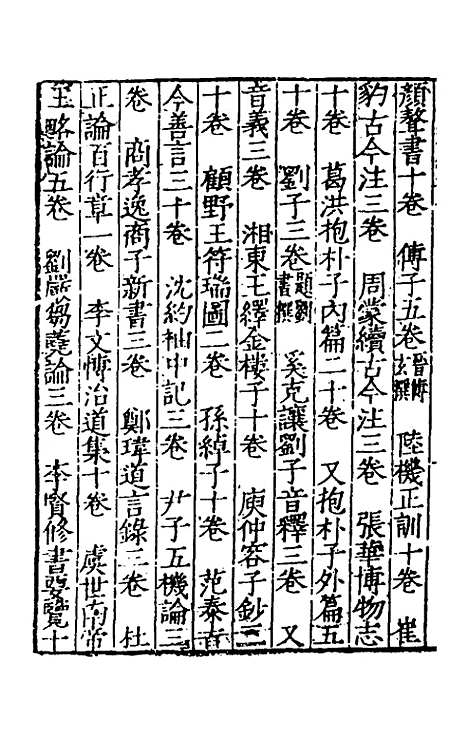 顏聱書十卷　傅子五卷晉傅玄撰　陸機正訓十卷　崔
豹古今注三卷　周蒙續古今注三卷　張華博物志
十卷　葛洪抱朴子內篇二十卷　又抱朴子外篇五
十卷　劉子三卷題劉書撰　奚克讓劉子音釋三卷　又
音義三卷　湘東王繹金樓子十卷　庾仲容子鈔三
十卷　顧野王符瑞圖二卷　孫綽子十卷　范泰古
今善言三十卷　沈約袖中記三卷　尹子五機論三
卷　商孝逸商子新書三卷　鄭瑋道言錄三卷　杜
正論百行章一卷　李文博治道集十卷　虞世南帝
王略論五卷　劉嚴芻蕘論三卷　李賢修書要覽十